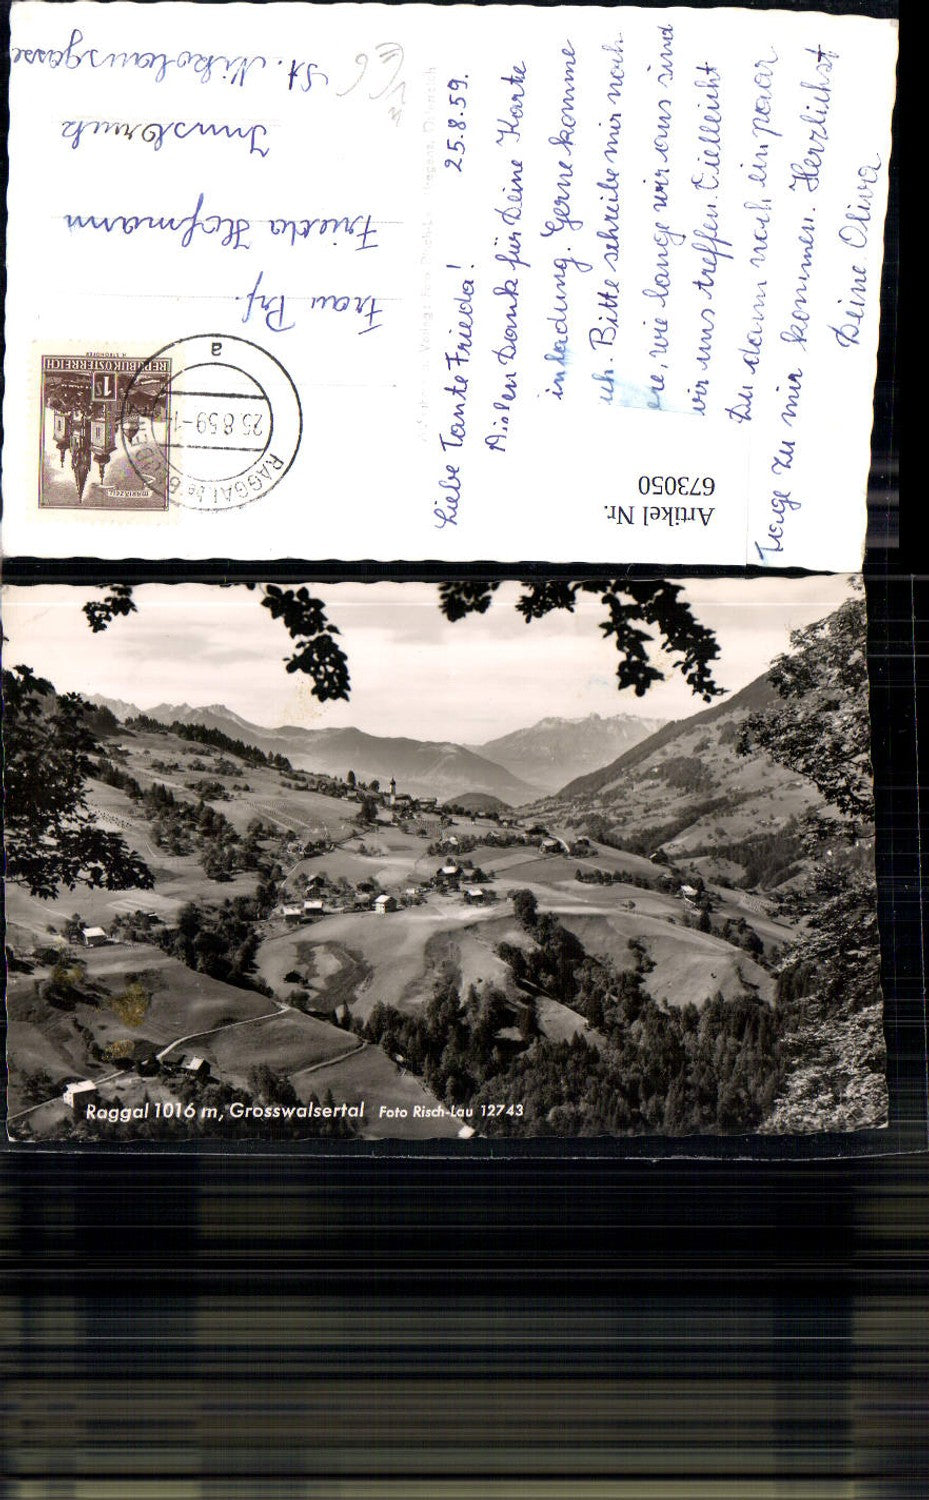 Liebe Tante Frieda! 25.8.59.
Vielen Dank für Deine Karte
ladung. Gerne komme
ich. Bitte schreibe mir noch
wie lange wir aus sind
wir uns treffen. Vielleicht
Du dann noch ein paar
Tage zu mir kommen. Herzlichst
Deine Oliva
Frau Prf.
Frieda Hofmann
Innsbruck
St. Nikolausgasse
REPUBLIK ÖSTERREICH
1S
MARIAZELL
RAGGAL
25.8.59-1
a
Artikel Nr.
673050
Raggal 1016 m, Grosswalsertal Foto Risch-Lau 12743